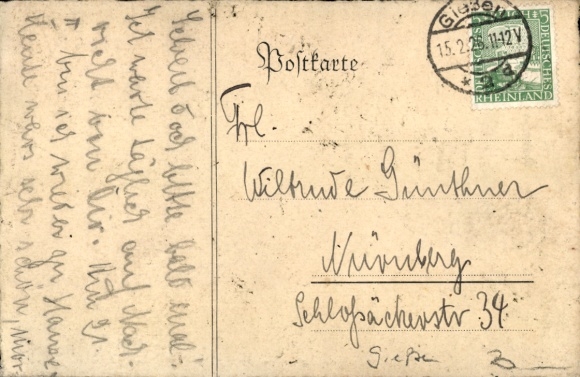 Postkarte
Gießen
15.2.26.11-12V
* 2 a
DEUTSCHES
RHEINLAND
Frl.
Wiltrude Günthner
Nürnberg
Schloßäckerstr 34
Gießen
Schreib doch bitte bald mal.
Ich warte täglich auf Nach-
richt von Dir. Am 21.
bin ich wieder zu Hause
Heute wars sehr schön,